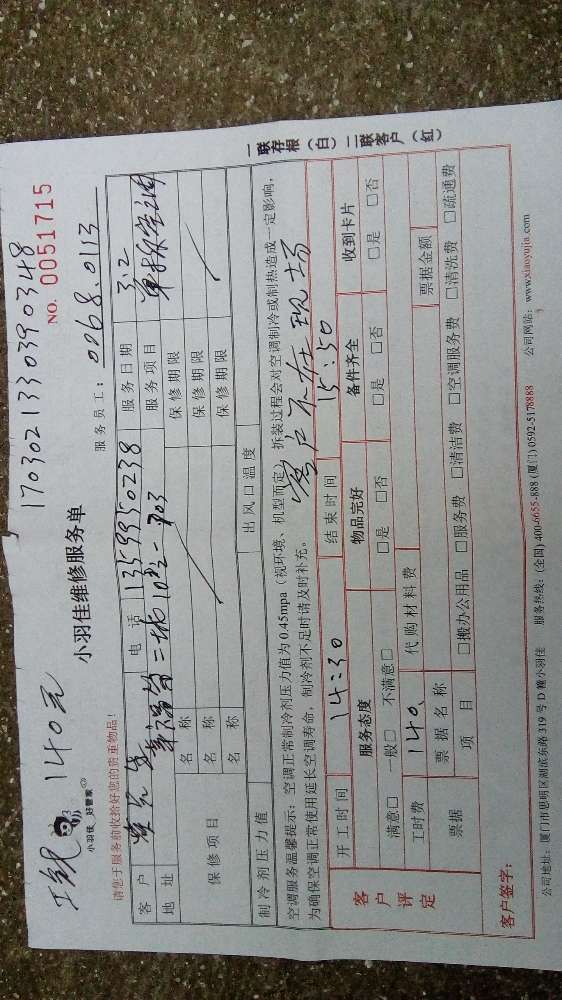 140元 17030213303903​48
小羽佳 好管家
小羽佳维修服务单
NO. 0051715
请您于服务前收拾好您的贵重物品！
服务员工：0068.0113
客户 电话 13599350238 服务日期 3.2
地址 二期 703 服务项目
保修项目 名称 保修期限
名称 保修期限
名称 保修期限
制冷剂压力值 出风口温度
空调服务温馨提示：空调正常制冷剂压力值为0.45mpa（视环境、机型而定），拆装过程会对空调制冷或制热造成一定影响，
为确保空调正常使用延长空调寿命，制冷剂不足时请及时补充。
客户不在现场
客户评定 开工时间 14:30 结束时间 15:50
服务态度 物品完好 备件齐全 收到卡片
满意□ 一般□ 不满意□ □是 □否 □是 □否 □是 □否
工时费 140. 代购材料费 票据金额
票据 票据名称
项目 □搬办公用品 □服务费 □清洁费 □空调服务费 □清洗费 □疏通费
客户签字：
公司地址：厦门市思明区湖滨东路319号D幢小羽佳 服务热线：(全国) 400-6655-888 (厦门) 0592-5178888 公司网站：www.xiaoyujia.com
一联存根（白）二联客户（红）